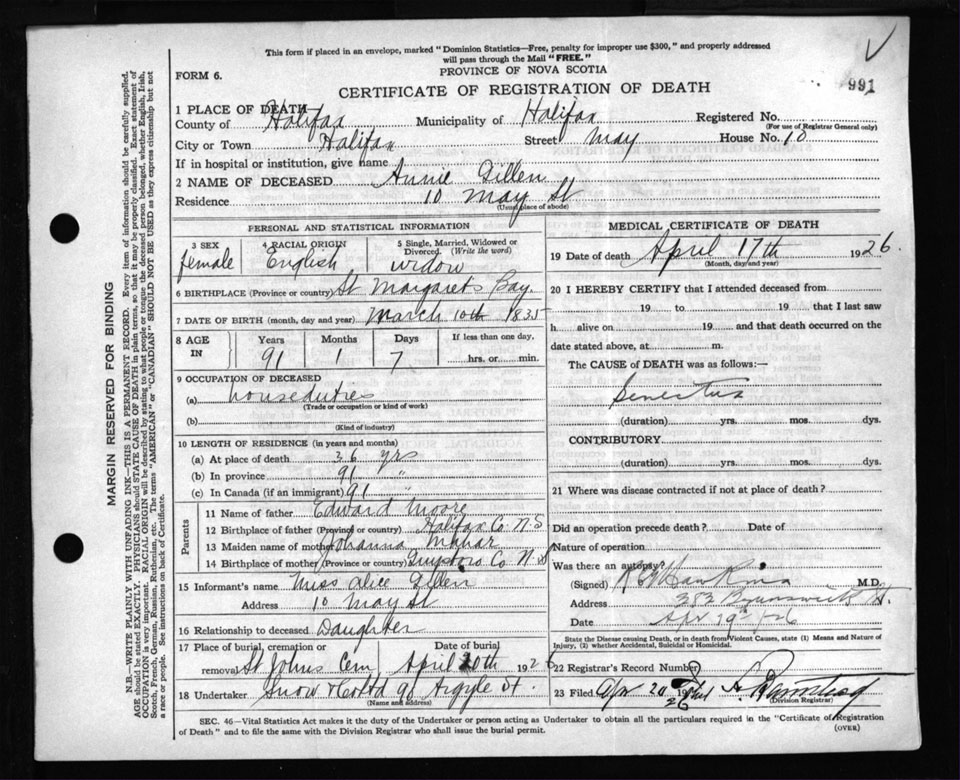 This form if placed in an envelope, marked "Dominion Statistics—Free, penalty for improper use $300," and properly addressed
will pass through the Mail "FREE."
FORM 6.
PROVINCE OF NOVA SCOTIA
991
CERTIFICATE OF REGISTRATION OF DEATH
1 PLACE OF DEATH
County of Halifax Municipality of Halifax Registered No.
(For use of Registrar General only)
City or Town Halifax Street May House No. 10
If in hospital or institution, give name
2 NAME OF DECEASED Annie Gillen
Residence 10 May St
(Usual place of abode)
PERSONAL AND STATISTICAL INFORMATION
3 SEX 4 RACIAL ORIGIN 5 Single, Married, Widowed or Divorced. (Write the word)
female English widow
6 BIRTHPLACE (Province or country) St Margarets Bay.
7 DATE OF BIRTH (month, day and year) March 10th 1835
8 AGE IN Years Months Days If less than one day,
91 1 7 hrs. or min.
9 OCCUPATION OF DECEASED
(a) houseduties
(Trade or occupation or kind of work)
(b)
(Kind of industry)
10 LENGTH OF RESIDENCE (in years and months)
(a) At place of death 36 yrs
(b) In province 91 "
(c) In Canada (if an immigrant) 91 "
Parents
11 Name of father Edward Moore
12 Birthplace of father (Province or country) Halifax Co N.S
13 Maiden name of mother Johanna Mahar
14 Birthplace of mother (Province or country) Guysboro Co N.S
15 Informant's name Miss Alice Gillen
Address 10 May St
16 Relationship to deceased Daughter
17 Place of burial, cremation or removal Date of burial
St Johns Cem April 20th 1926
18 Undertaker Snow & Co Ltd 90 Argyle St.
(Name and address)
MEDICAL CERTIFICATE OF DEATH
19 Date of death April 17th 1926.
(Month, day and year)
20 I HEREBY CERTIFY that I attended deceased from
19 to 19 that I last saw
h. alive on 19 and that death occurred on the
date stated above, at m.
The CAUSE of DEATH was as follows:—
Senectus
(duration) yrs. mos. dys.
CONTRIBUTORY
(duration) yrs. mos. dys.
21 Where was disease contracted if not at place of death?
Did an operation precede death? Date of
Nature of operation
Was there an autopsy?
(Signed) Hawkins M.D.
Address 382 Brunswick St.
Date Apr 19th /26
State the Disease causing Death, or in death from Violent Causes, state (1) Means and Nature of
Injury, (2) whether Accidental, Suicidal or Homicidal.
22 Registrar's Record Number
23 Filed Apr 20 1926
(Division Registrar)
SEC. 46—Vital Statistics Act makes it the duty of the Undertaker or person acting as Undertaker to obtain all the particulars required in the "Certificate of Registration
of Death" and to file the same with the Division Registrar who shall issue the burial permit.
(OVER)
MARGIN RESERVED FOR BINDING
N.B.—WRITE PLAINLY WITH UNFADING INK—THIS IS A PERMANENT RECORD. Every item of information should be carefully supplied.
AGE should be stated EXACTLY. PHYSICIANS should STATE CAUSE OF DEATH in plain terms, so that it may be properly classified. Exact statement of
OCCUPATION is very important. RACIAL ORIGIN will be described by stating to what people or tongue the deceased person belonged, whether English, Irish,
Scotch, French, German, Russian, Ruthenian, etc. The terms "AMERICAN" or "CANADIAN" SHOULD NOT BE USED as they express citizenship but not
a race or people. See instructions on back of Certificate.